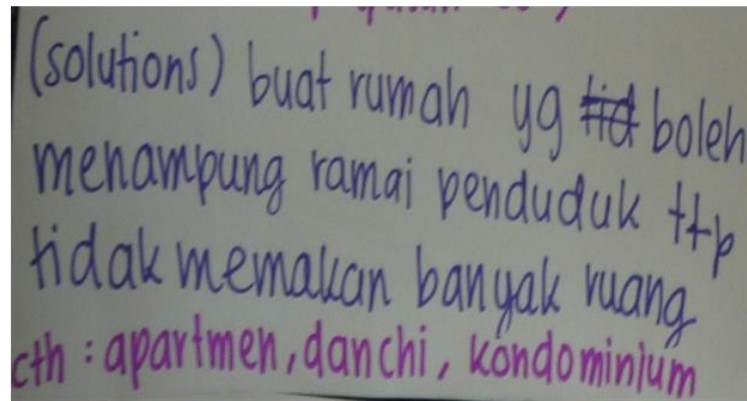 (solutions) buat rumah yg boleh
menampung ramai penduduk ttp
tidak memakan banyak ruang
cth : apartmen, danchi, kondominium